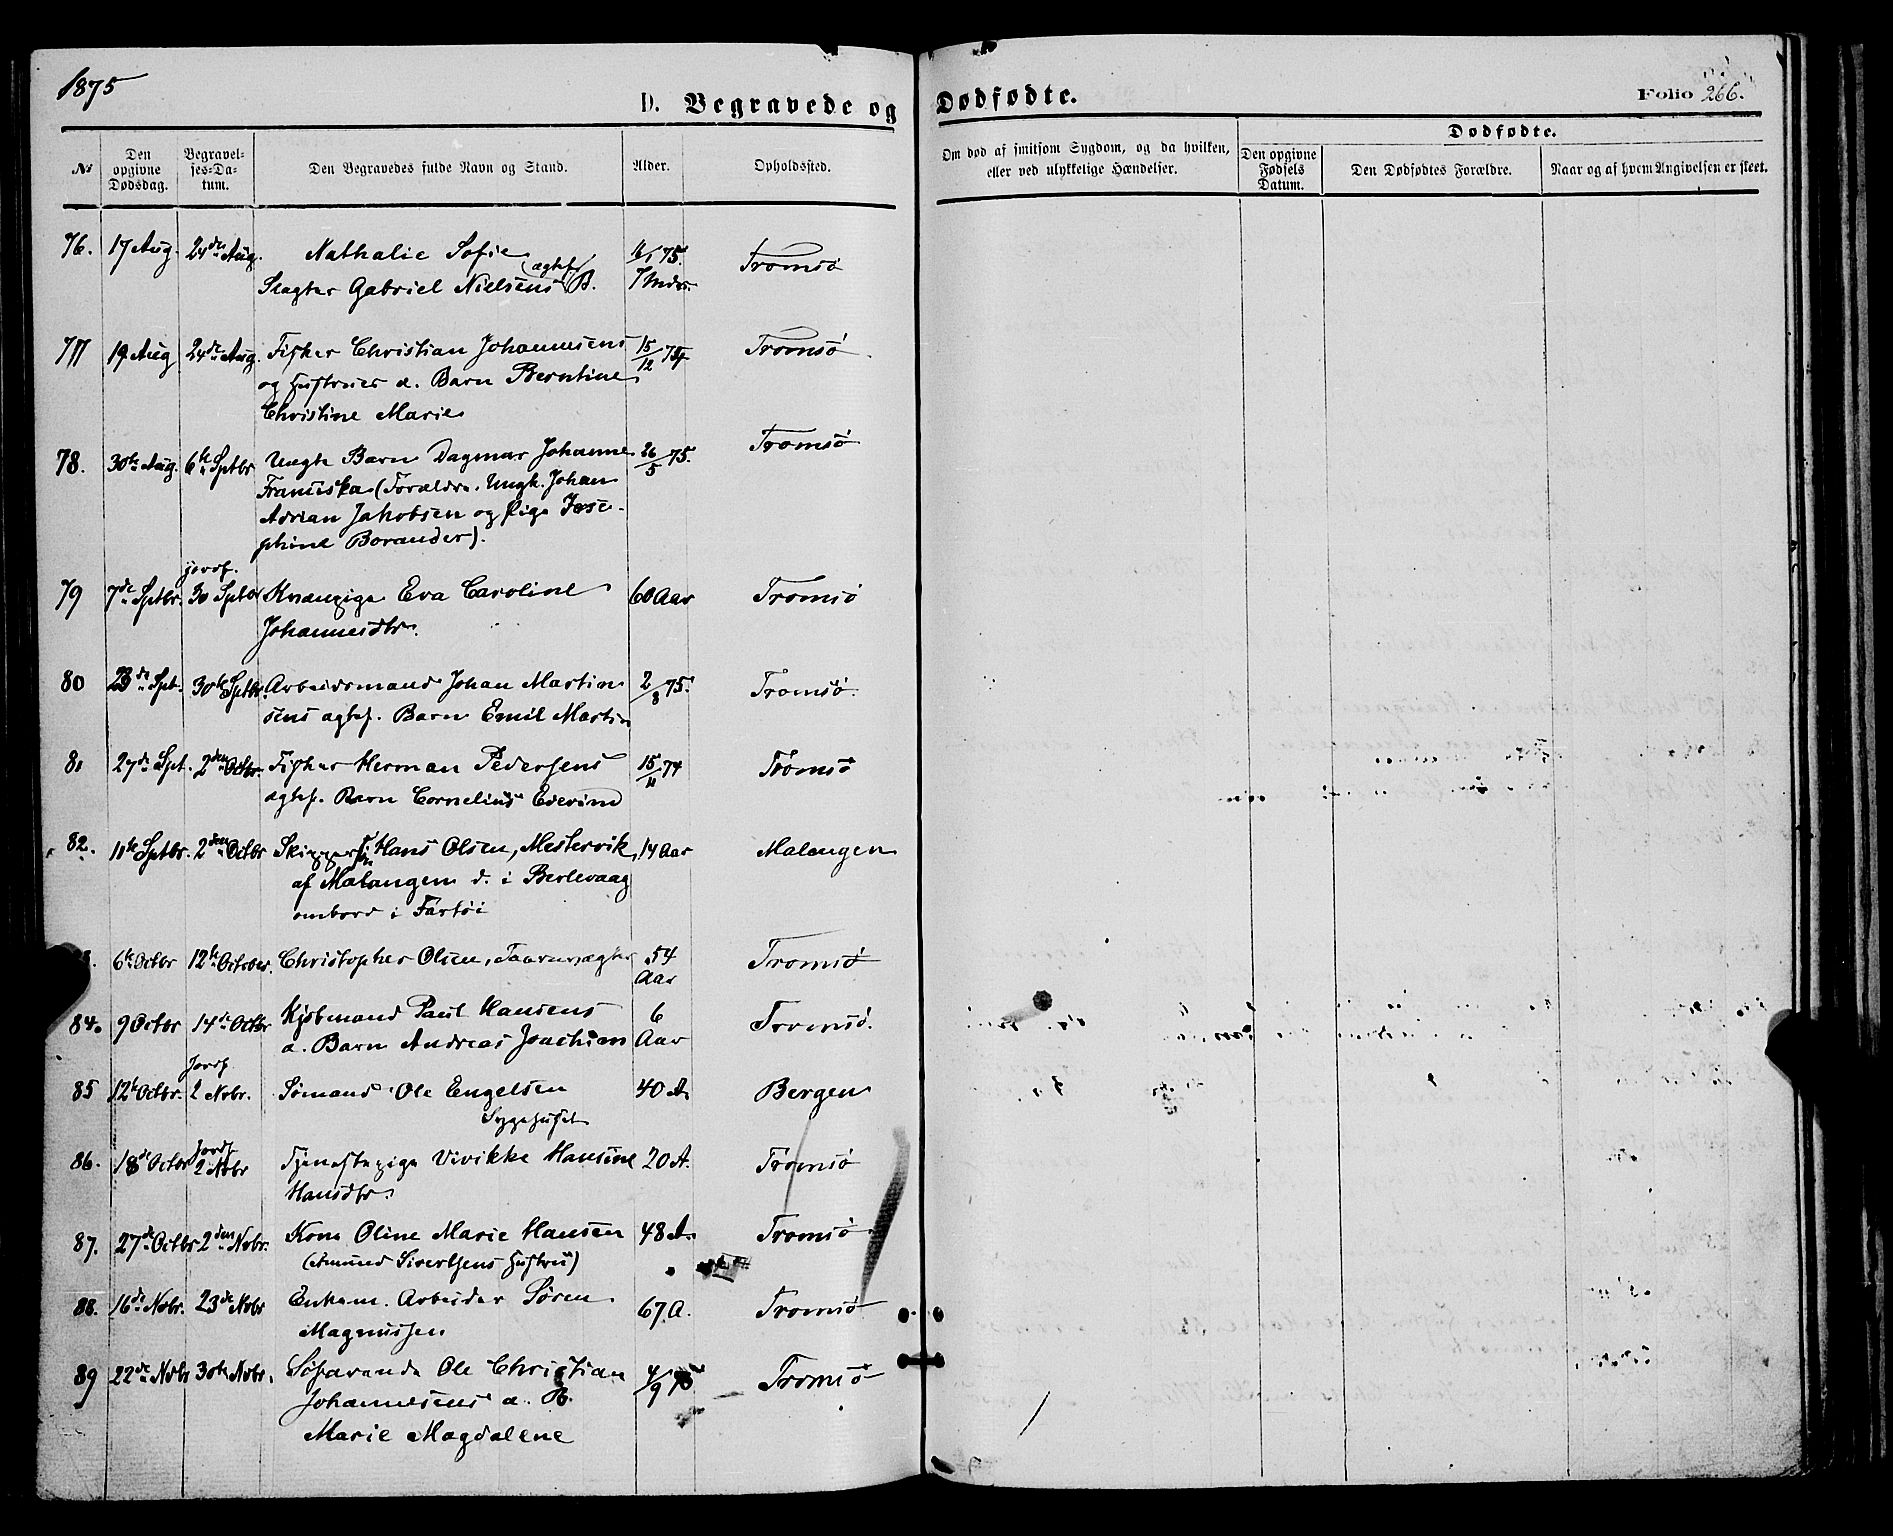 1875
D. Begravede og Dødfødte.
Folio 266.
Dødfødte.
No
Den opgivne Dødsdag.
Begravel-ses-Da-tum.
Den Begravedes fulde Navn og Stand.
Alder.
Opholdssted.
Om død af smitsom Sygdom, og da hvilken, eller ved ulykkelige Hændelser.
Den opgivne Fødsels Datum.
Den Dødfødtes Forældre.
Naar og af hvem Angivelsen er skeet.
76. 17 Aug. 24de Aug. Nathalie Sofie 11/1 75. Tromsö
Slagter Gabriel Nielsens ægtef B. 7 Mdr.
77 19 Aug 24de Aug. Fisker Christian Johannesens 15/12 74 Tromsö
og Hustrues æ. Barn Berntine
Christine Marie
78. 30te Aug. 6te Sptbr Uægte Barn Dagmar Johanne 26/5 75. Tromsö
Franciska (Forældre. Ungk. Johan
Adrian Jakobsen og Pige Jose-
phine Borander).
jordf.
79 7de Sptbr. 30 Sptbr Eva Caroline 60 Aar Tromsö
Johannesdtr.
80 23de Spt. 30te Sptbr. Arbeidsmand Johan Martin 2/8 75. Tromsö.
sens ægtef. Barn Emil Martin
81 27de Spt. 2den Octbr. Fisker Herman Pedersens 15/11 74 Tromsö
ægtef. Barn Cornelius Edevind
82. 11te Sptbr. 2den Octbr Skipper Hans Olsen, Mestervik 14 Aar Malangen
af Malangen d. i Berlevaag
ombord i Fartöi
6te Octbr 12te October. Christopher Olsen, Taarnvægter 54 Tromsö
Aar
84. 9 Octbr 14de Octbr Kjöbmand Paul Hansens 6 Tromsö.
æ. Barn Andreas Joachim Aar
Jordf
85 12te Octbr. 2 Nvbr. Sömand Ole Engelsen 40 A. Bergen
Sygehuset
Jordf
86. 18de Octbr 2 Nvbr Tjenestepige Vivikke Hansine 20 A. Tromsö
Hansdtr.
87. 27de Octbr 2den Nvbr. Kone Oline Marie Hansen 48 A. Tromsö
(Amund Sivertsens Hustru)
88. 16de Nvbr. 23de Nvbr Enkem. Arbeider Sören 67 A. Tromsö
Magnussen
89 22de Nvbr 30te Nvbr. Söfarende Ole Christian 4/9 75 Tromsö
Johannesens æ. B.
Marie Magdalene